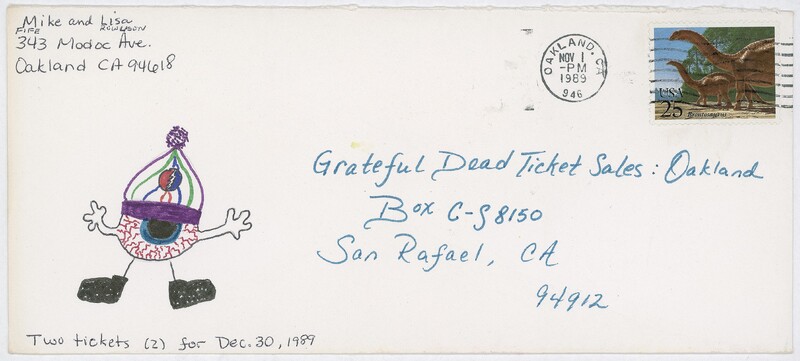 Mike and Lisa
FIFE ROWLISON
343 Modoc Ave.
Oakland CA 94618
OAKLAND, CA
NOV 1
-PM
1989
946
USA
25
Brontosaurus
Grateful Dead Ticket Sales: Oakland
Box C-S 8150
San Rafael, CA
94912
Two tickets (2) for Dec. 30, 1989